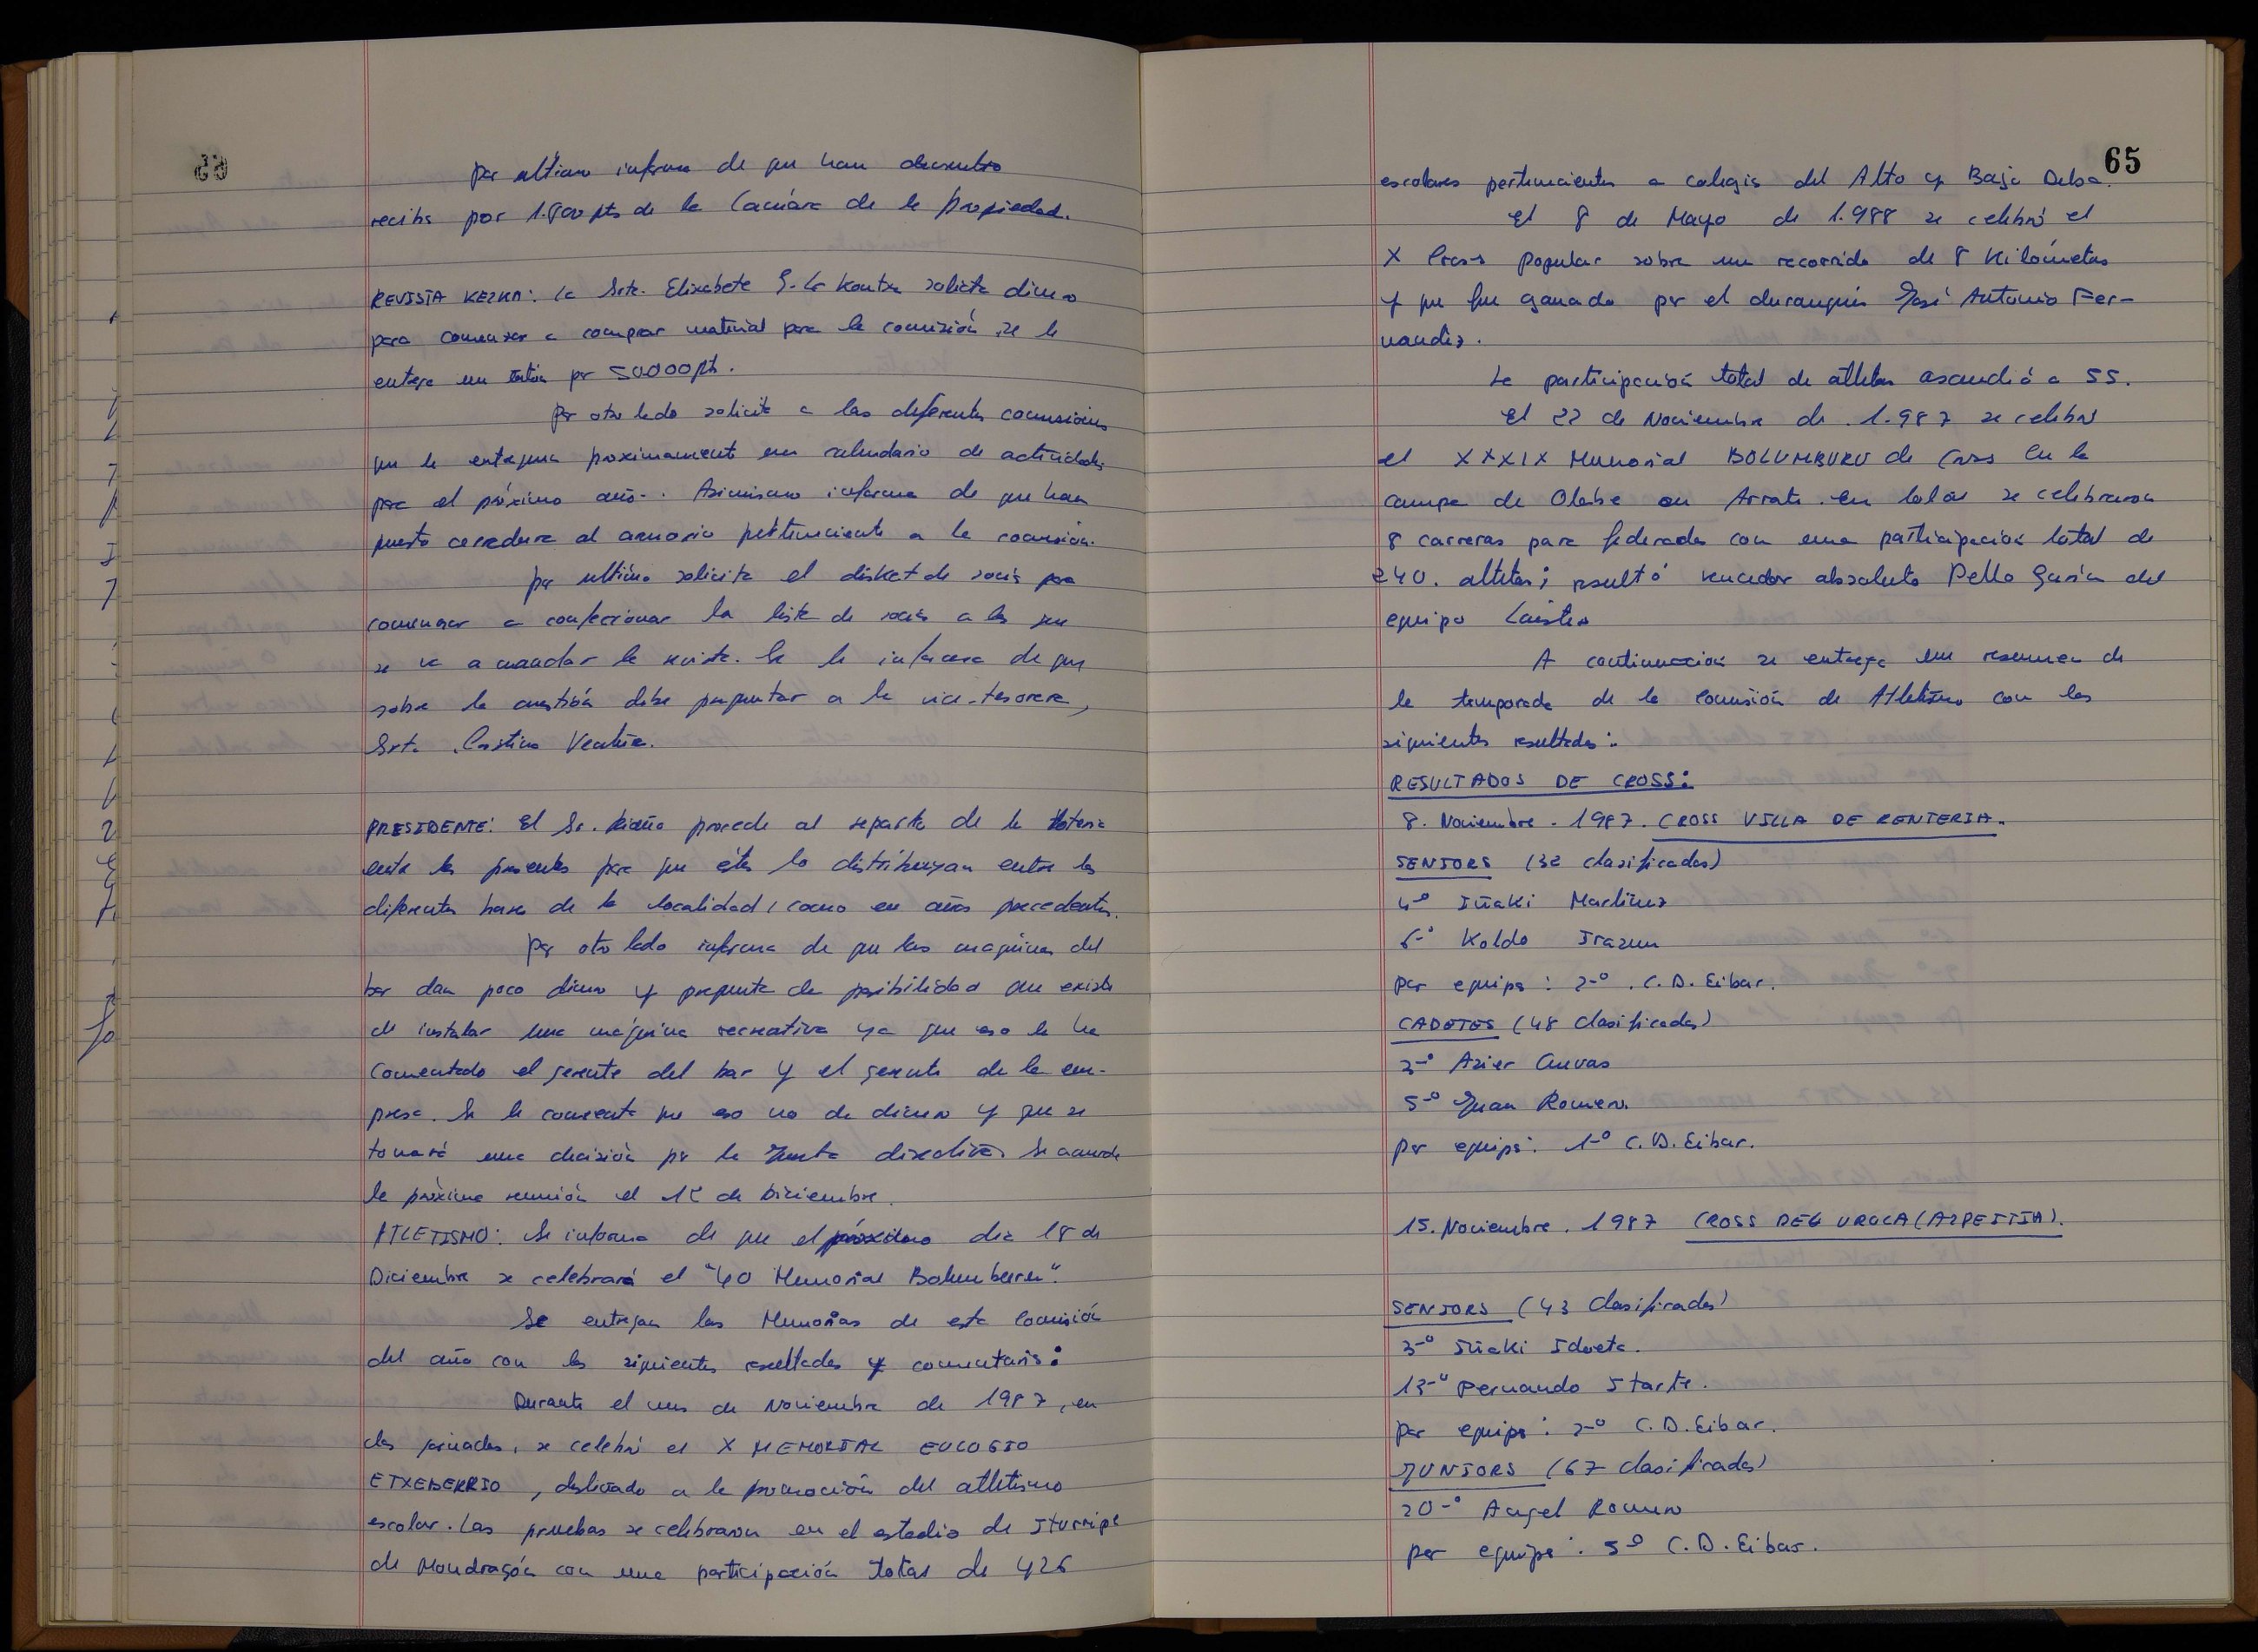 Por último informa de que han devuelto
recibo por 1.800 pts de la Cámara de la Propiedad.
REVISTA KEZKA: la Srta. Elixabete G. la solicita dinero
para comenzar a comprar material para la comisión, se le
entrega un talón por 50.000 pts.
Por otro lado solicita a las diferentes comisiones
que le entreguen proximamente un calendario de actividades
para el próximo año. Asimismo informa de que han
puesto cerradura al armario perteneciente a la comisión.
Por ultimo solicita el disket de socios para
comenzar a confeccionar la lista de socios a los que
se va a mandar la revista. Se le informa de que
sobre la cuestión debe preguntar a la vice-tesorera,
Srta. Cristina
PRESIDENTE: El Sr. procede al reparto de la lotería
entre los presentes para que éstos lo distribuyan entre los
diferentes bares de la localidad, como en años precedentes.
Por otro lado informa de que las maquinas del
bar dan poco dinero y pregunta de posibilidad que existe
de instalar una máquina recreativa ya que eso le ha
comentado el gerente del bar y el gerente de la em-
presa. Se le comenta que eso no da dinero y que se
tomará una decisión por la Junta directiva. Se acuerda
la próxima reunión el 15 de Diciembre.
ATLETISMO: Se informa de que el próximo dia 18 de
Diciembre se celebrará el "40 Memorial Bolumburu".
Se entregan las Memorias de esta Comisión
del año con los siguientes resultados y comentarios:
Durante el mes de Noviembre de 1987, en
dos jornadas, se celebró el X MEMORIAL EULOGIO
ETXEBERRIO, destinado a la promoción del atletismo
escolar. Las pruebas se celebraron en el estadio de Iturripe
de Mondragón con una participación total de 426
65
escolares pertenecientes a colegios del Alto y Bajo Deba.
El 8 de Mayo de 1.988 se celebró el
X Cross popular sobre un recorrido de 8 Kilómetros
y que fue ganado por el durangués José Antonio Fer-
nandez.
La participación total de atletas ascendió a 55.
El 22 de Noviembre de 1.987 se celebró
el XXXIX Memorial BOLUMBURU de Cross en la
campa de Olabe en Arrate. En total se celebraron
8 carreras para federados con una participación total de
240. atletas; resultó vencedor absoluto Pello García del
equipo
A continuación se entrega un resumen de
la temporada de la Comisión de Atletismo con los
siguientes resultados:
RESULTADOS DE CROSS:
8. Noviembre. 1987. CROSS VILLA DE RENTERIA.
SENIORS (32 clasificados)
4º Iñaki Martinez
6º Koldo Irazun
Por equipos: 2º. C.D. Eibar.
CADETES (48 clasificados)
2º Asier Cuevas
5º Juan Romero.
Por equipos: 1º C.D. Eibar.
15. Noviembre. 1987 CROSS DEL UROLA (AZPEITIA).
SENIORS (43 clasificados)
3º Iñaki Idoeta.
13º Fernando Iriarte.
Por equipos: 2º C.D. Eibar.
JUNIORS (67 clasificados)
20º Angel Romero
Por equipos: 5º C.D. Eibar.